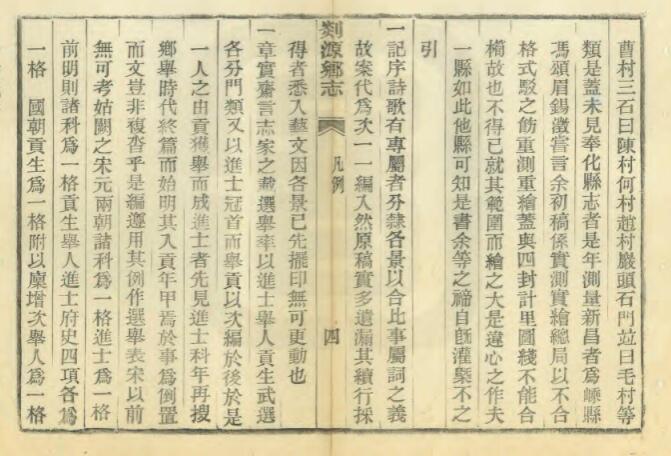 曹村三石曰陳村何村趙村嚴頭石門竝曰毛村等
類是蓋未見奉化縣志者是年測量新昌者爲嵊縣
馮頌眉錫澂嘗言余初稿係實測實繪總局以不合
格式駁之飭重測重繪蓋與四封計里圖綫不能合
樀故也不得已就其範圍而繪之大是違心之作夫
一縣如此他縣可知是書余等之禘自旣灌槩不之
引
一記序詩歌有專屬者分隸各景以合比事屬詞之義
故案代爲次一一編入然原稿實多遺漏其續行採
剡源鄉志
凡例
四
得者悉入藝文因各景已先擺印無可更動也
一章實齋言志家之載選舉率以進士舉人貢生武選
各分門類又以進士冠首而舉貢以次編於後於是
一人之由貢獲舉而成進士者先見進士科年再搜
鄉舉時代終篇而始明其入貢年甲焉於事爲倒置
而文豈非複沓乎是編遵用其例作選舉表宋以前
無可考姑闕之宋元兩朝諸科爲一格進士爲一格
前明則諸科爲一格貢生舉人進士府史四項各爲
一格　國朝貢生爲一格附以廩增次舉人爲一格